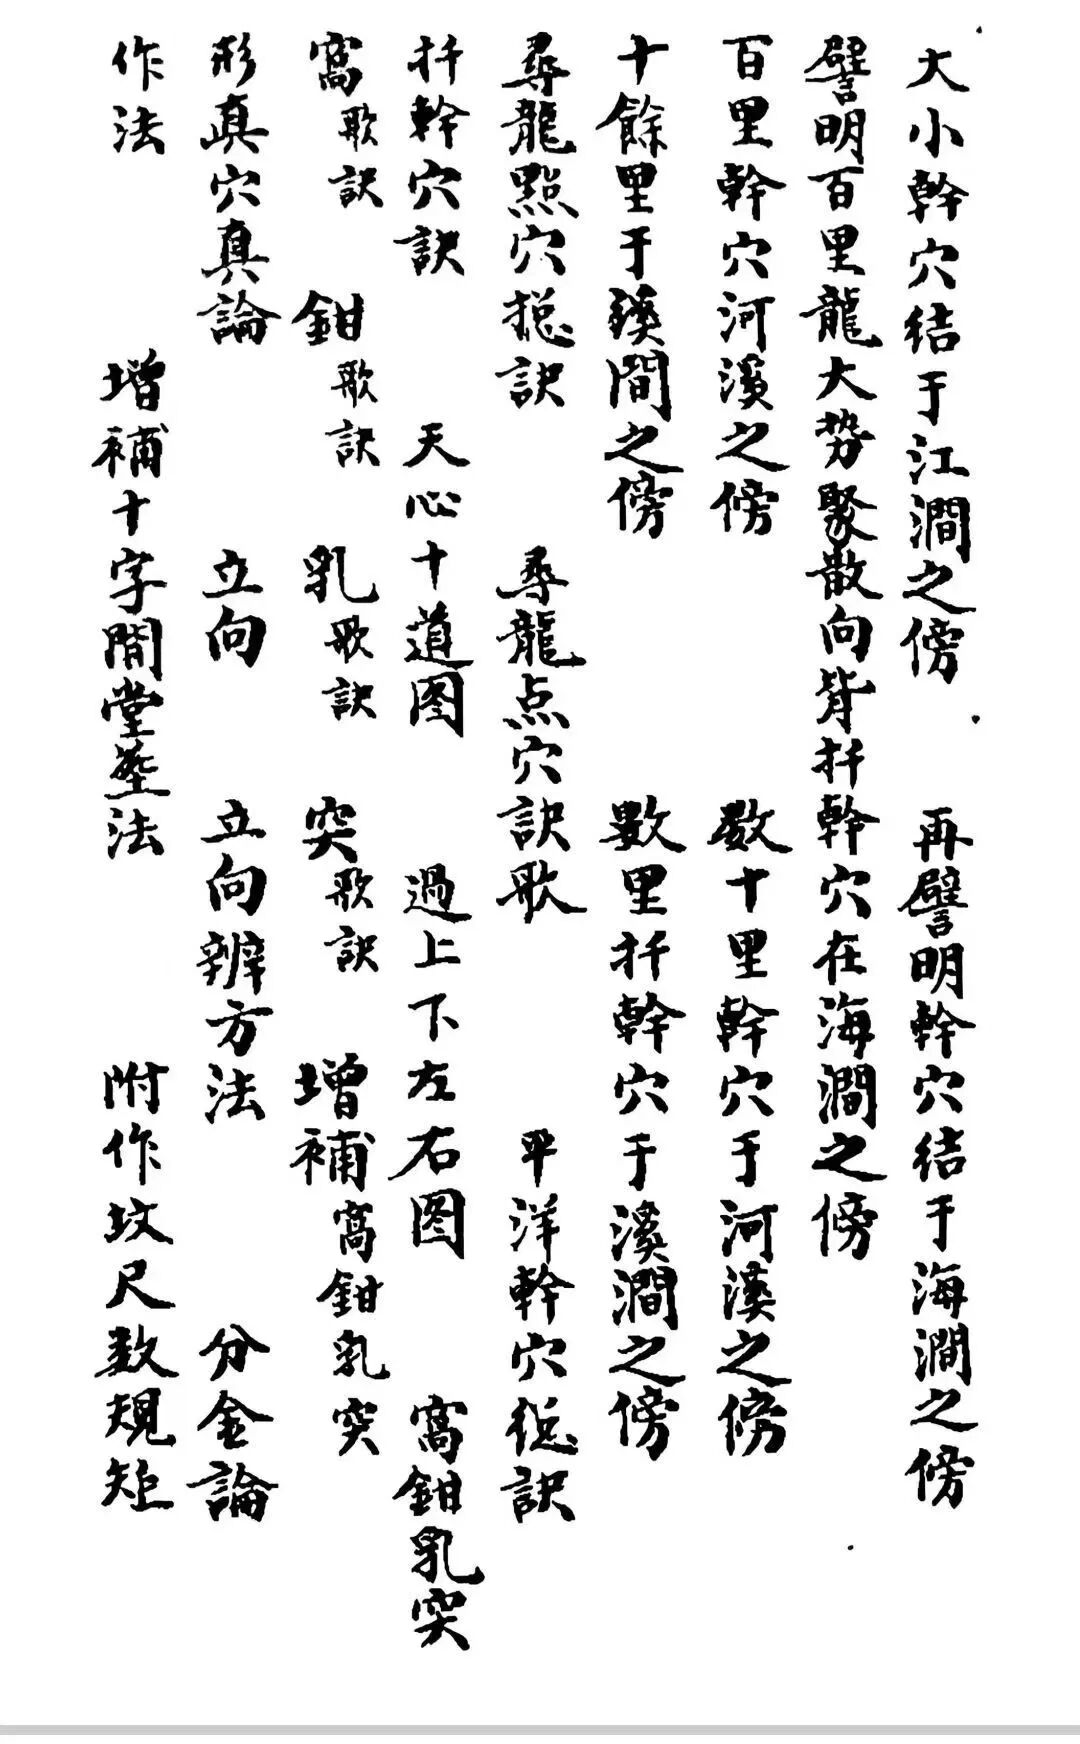 大小幹穴結于江澗之傍　再譬明幹穴結于海澗之傍
譬明百里龍大势聚散向背扦幹穴在海澗之傍
百里幹穴河溪之傍　数十里幹穴于河溪之傍
十餘里于溪間之傍　數里扦幹穴于溪澗之傍
尋龍點穴捴訣　尋龍点穴訣歌　平洋幹穴揔訣
扦幹穴訣　天心十道图　過上下左右图　窩鉗乳突
窩歌訣　鉗歌訣　乳歌訣　突歌訣　增補窩鉗乳突
形真穴真論　立向　立向辨方法　分金論
作法　增補十字開堂塟法　附作坟尺数規矩